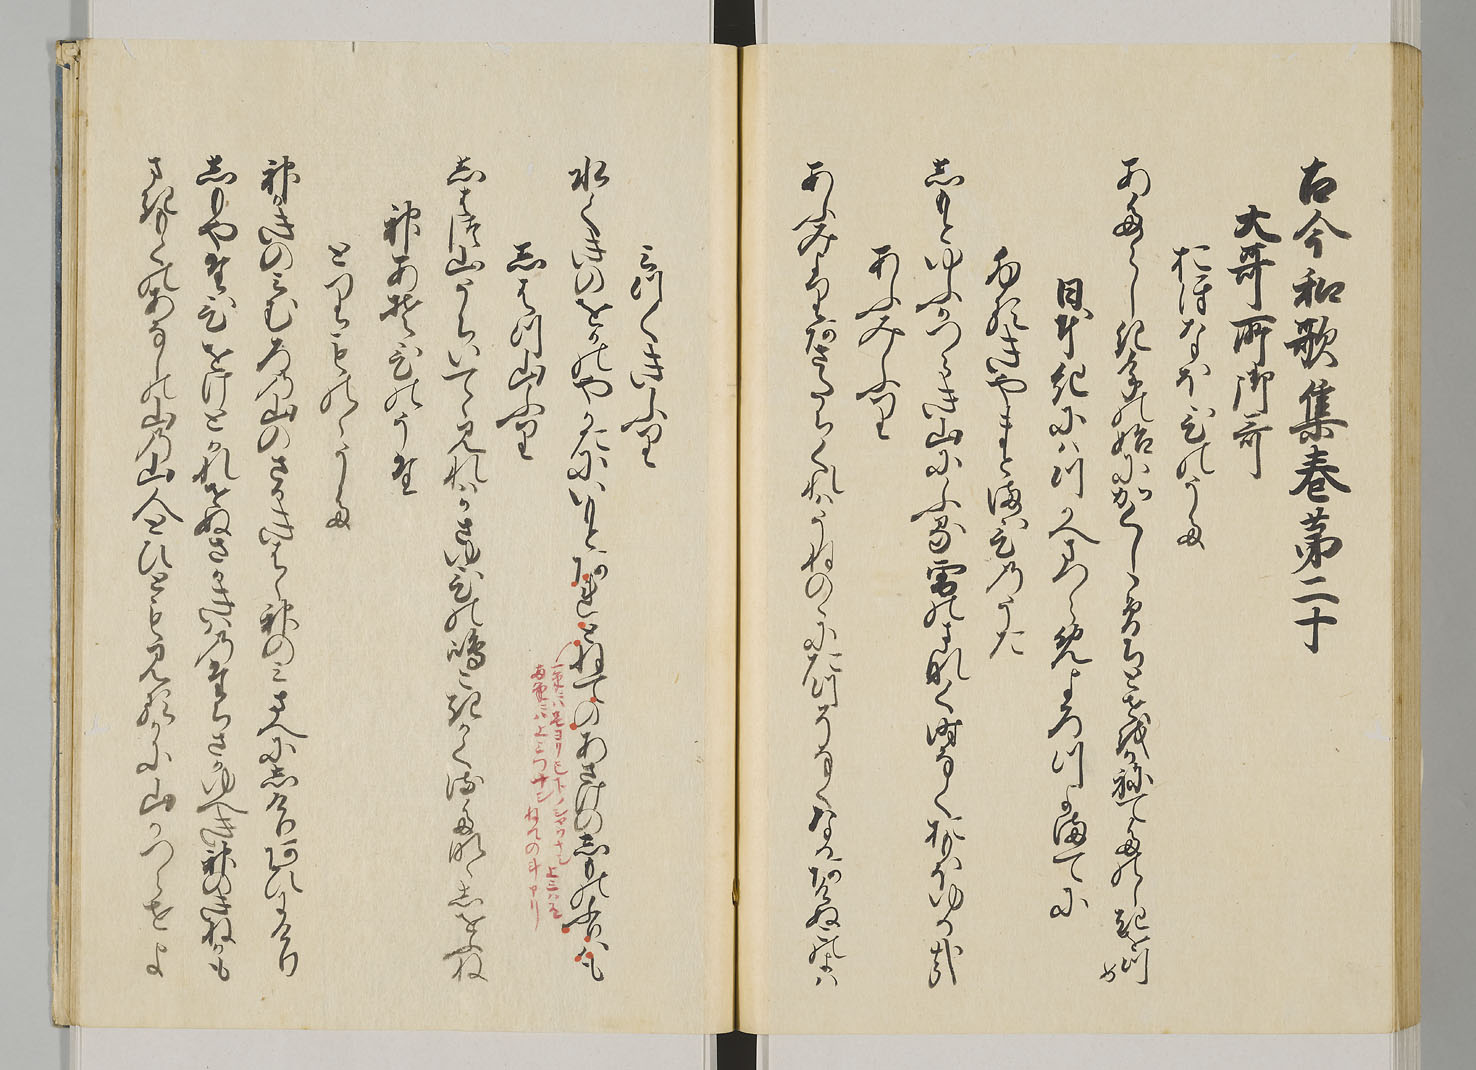 古今和歌集巻第二十
大哥所御哥
おほなほひのうた
あたらしき年の始にかくしこそちとせをかねてたのしきをつめ
日本紀にハつかへまつらめよろつよまてに
ふるきやまとまひのうた
しもとゆふかつらき山にふる雪のまなく時なくおもほゆる哉
あふみふり
あふみよりあさたちくれハうねのゝにたつそなくなるあけぬこのよハ
みつくきふり
水くきのをかのやかたにいもとあれとねてのあさけのしものふりハも
しはつ山ふり
しはつ山うちいてゝ見れハかさゆひの嶋こきかくるたなゝしをふね
神あそひのうた
とりものゝうた
神かきのみむろの山のさかきはゝ神のみまへにしけりあひにけり
しもやたひをけとかれせぬさかきはのたちさかゆへき神のきねかも
まきもくのあなしの山の山人とひとも見るかに山かつらせよ